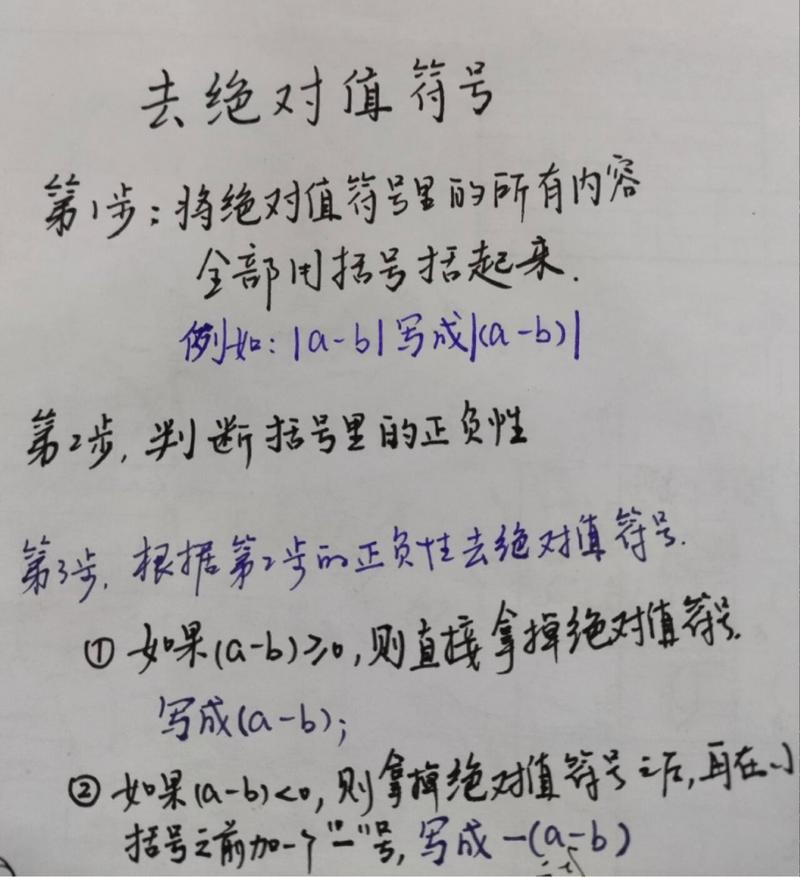 去绝对值符号
第1步:将绝对值符号里的所有内容
全部用括号括起来.
例如:|a-b|写成|(a-b)|
第2步,判断括号里的正负性
第3步,根据第2步的正负性去绝对值符号.
① 如果(a-b)≥0,则直接拿掉绝对值符号.
写成(a-b);
② 如果(a-b)<0,则拿掉绝对值符号之后,再在小
括号之前加一个"-"号,写成-(a-b)